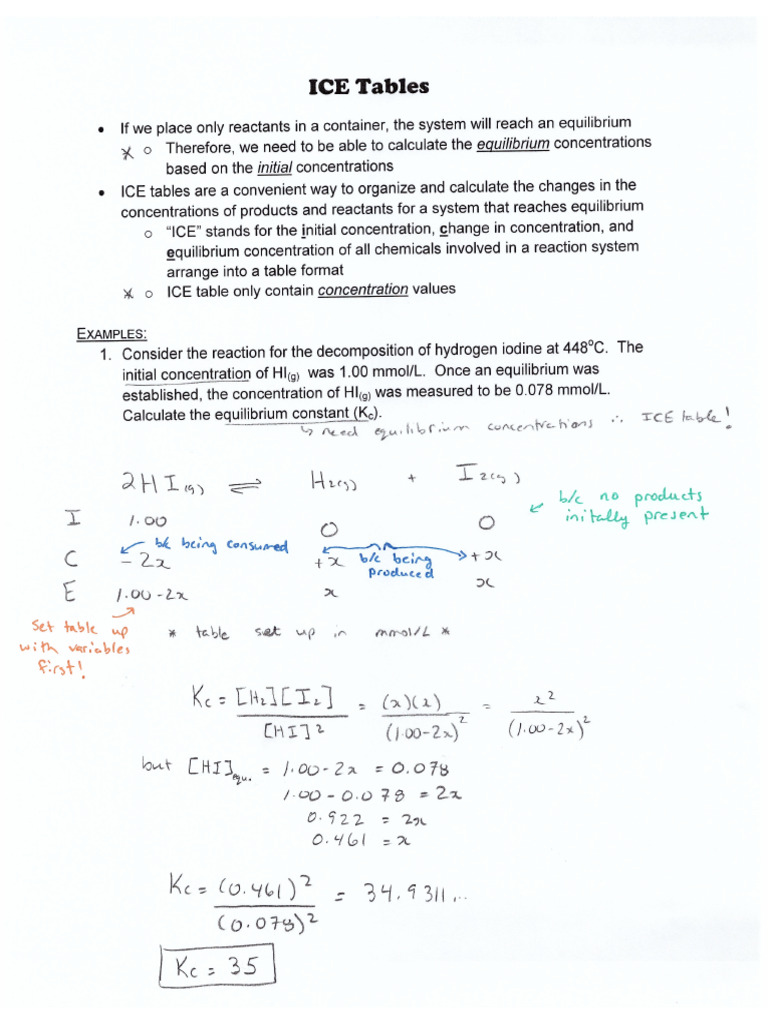 ICE Tables
• If we place only reactants in a container, the system will reach an equilibrium
* o Therefore, we need to be able to calculate the equilibrium concentrations
based on the initial concentrations
• ICE tables are a convenient way to organize and calculate the changes in the
concentrations of products and reactants for a system that reaches equilibrium
o "ICE" stands for the initial concentration, change in concentration, and
equilibrium concentration of all chemicals involved in a reaction system
arrange into a table format
* o ICE table only contain concentration values
EXAMPLES:
1. Consider the reaction for the decomposition of hydrogen iodine at 448°C. The
initial concentration of HI(g) was 1.00 mmol/L. Once an equilibrium was
established, the concentration of HI(g) was measured to be 0.078 mmol/L.
Calculate the equilibrium constant (Kc).
↳ need equilibrium concentrations ∴ ICE table!
2HI(g) ⇌ H2(g) + I2(g)
← b/c no products
initally present
I 1.00 0 0
← b/c being consumed
C -2x +x b/c being produced +x
E 1.00-2x x x
Set table up
with variables
first!
* table set up in mmol/L *
Kc = [H2][I2] / [HI]² = (x)(x) / (1.00-2x)² = x² / (1.00-2x)²
but [HI]equ. = 1.00-2x = 0.078
1.00 - 0.078 = 2x
0.922 = 2x
0.461 = x
Kc = (0.461)² / (0.078)² = 34.9311...
Kc = 35